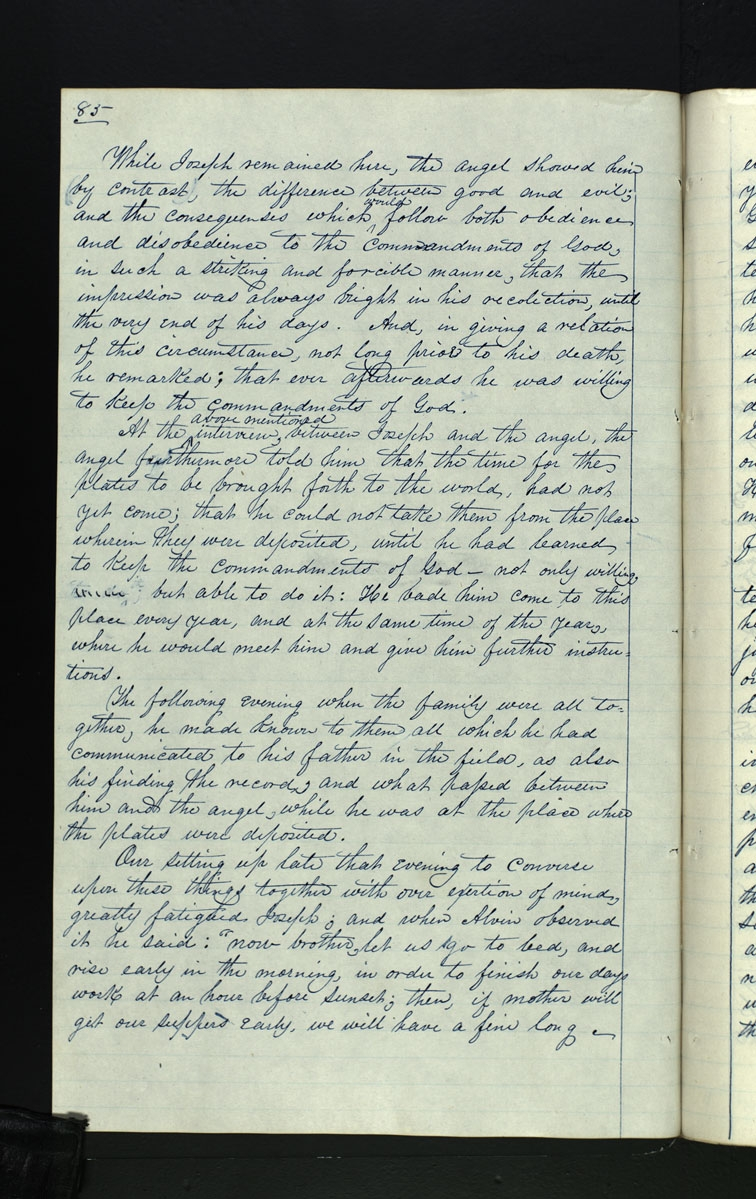 85
While Joseph remained here, the angel showed him
by contrast, the difference between good and evil;
and the consequenses which would follow both obedience
and disobedience to the commandments of God,
in such a striking and forcible manner, that the
impression was always bright in his recolection, until
the very end of his days. And, in giving a relation
of this circumstance, not long prior to his death,
he remarked; that ever afterwards he was willing
to keep the commandments of God.
At the above mentioned interview, between Joseph and the angel, the
angel furthermore told him that the time for the
plates to be brought forth to the world, had not
yet come; that he could not take them from the place
wherein they were deposited, until he had learned
to keep the commandments of God — not only willing,
but able to do it: He bade him come to this
place every year, and at the same time of the year,
where he would meet him and give him further instru=
tions.
The following evening when the family were all to=
gether, he made known to them, all which he had
communicated to his father in the field, as also
his finding the record, and what passed between
him and the angel, while he was at the place where
the plates were deposited.
Our setting up late that evening to converse
upon these things together with over exertion of mind,
greatly fatigued Joseph; and when Alvin observed
it he said: "now brother, let us go to bed, and
rise early in the morning, in order to finish our days
work at an hour before sunset; then, if mother will
get our suppers early, we will have a fine long